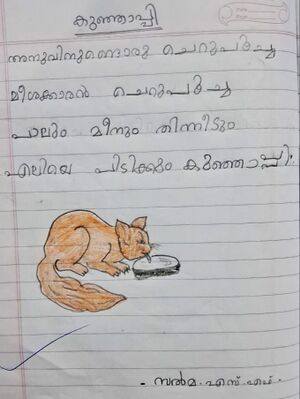 കുഞ്ഞാപ്പി
അനുവിനുണ്ടൊരു ചെറുപൂച്ച
മീശക്കാരൻ ചെറുപൂച്ച
പാലും മീനും തിന്നീടും
എലിയെ പിടിക്കും കുഞ്ഞാപ്പി.
- സൽമ. എസ്. എഫ്.